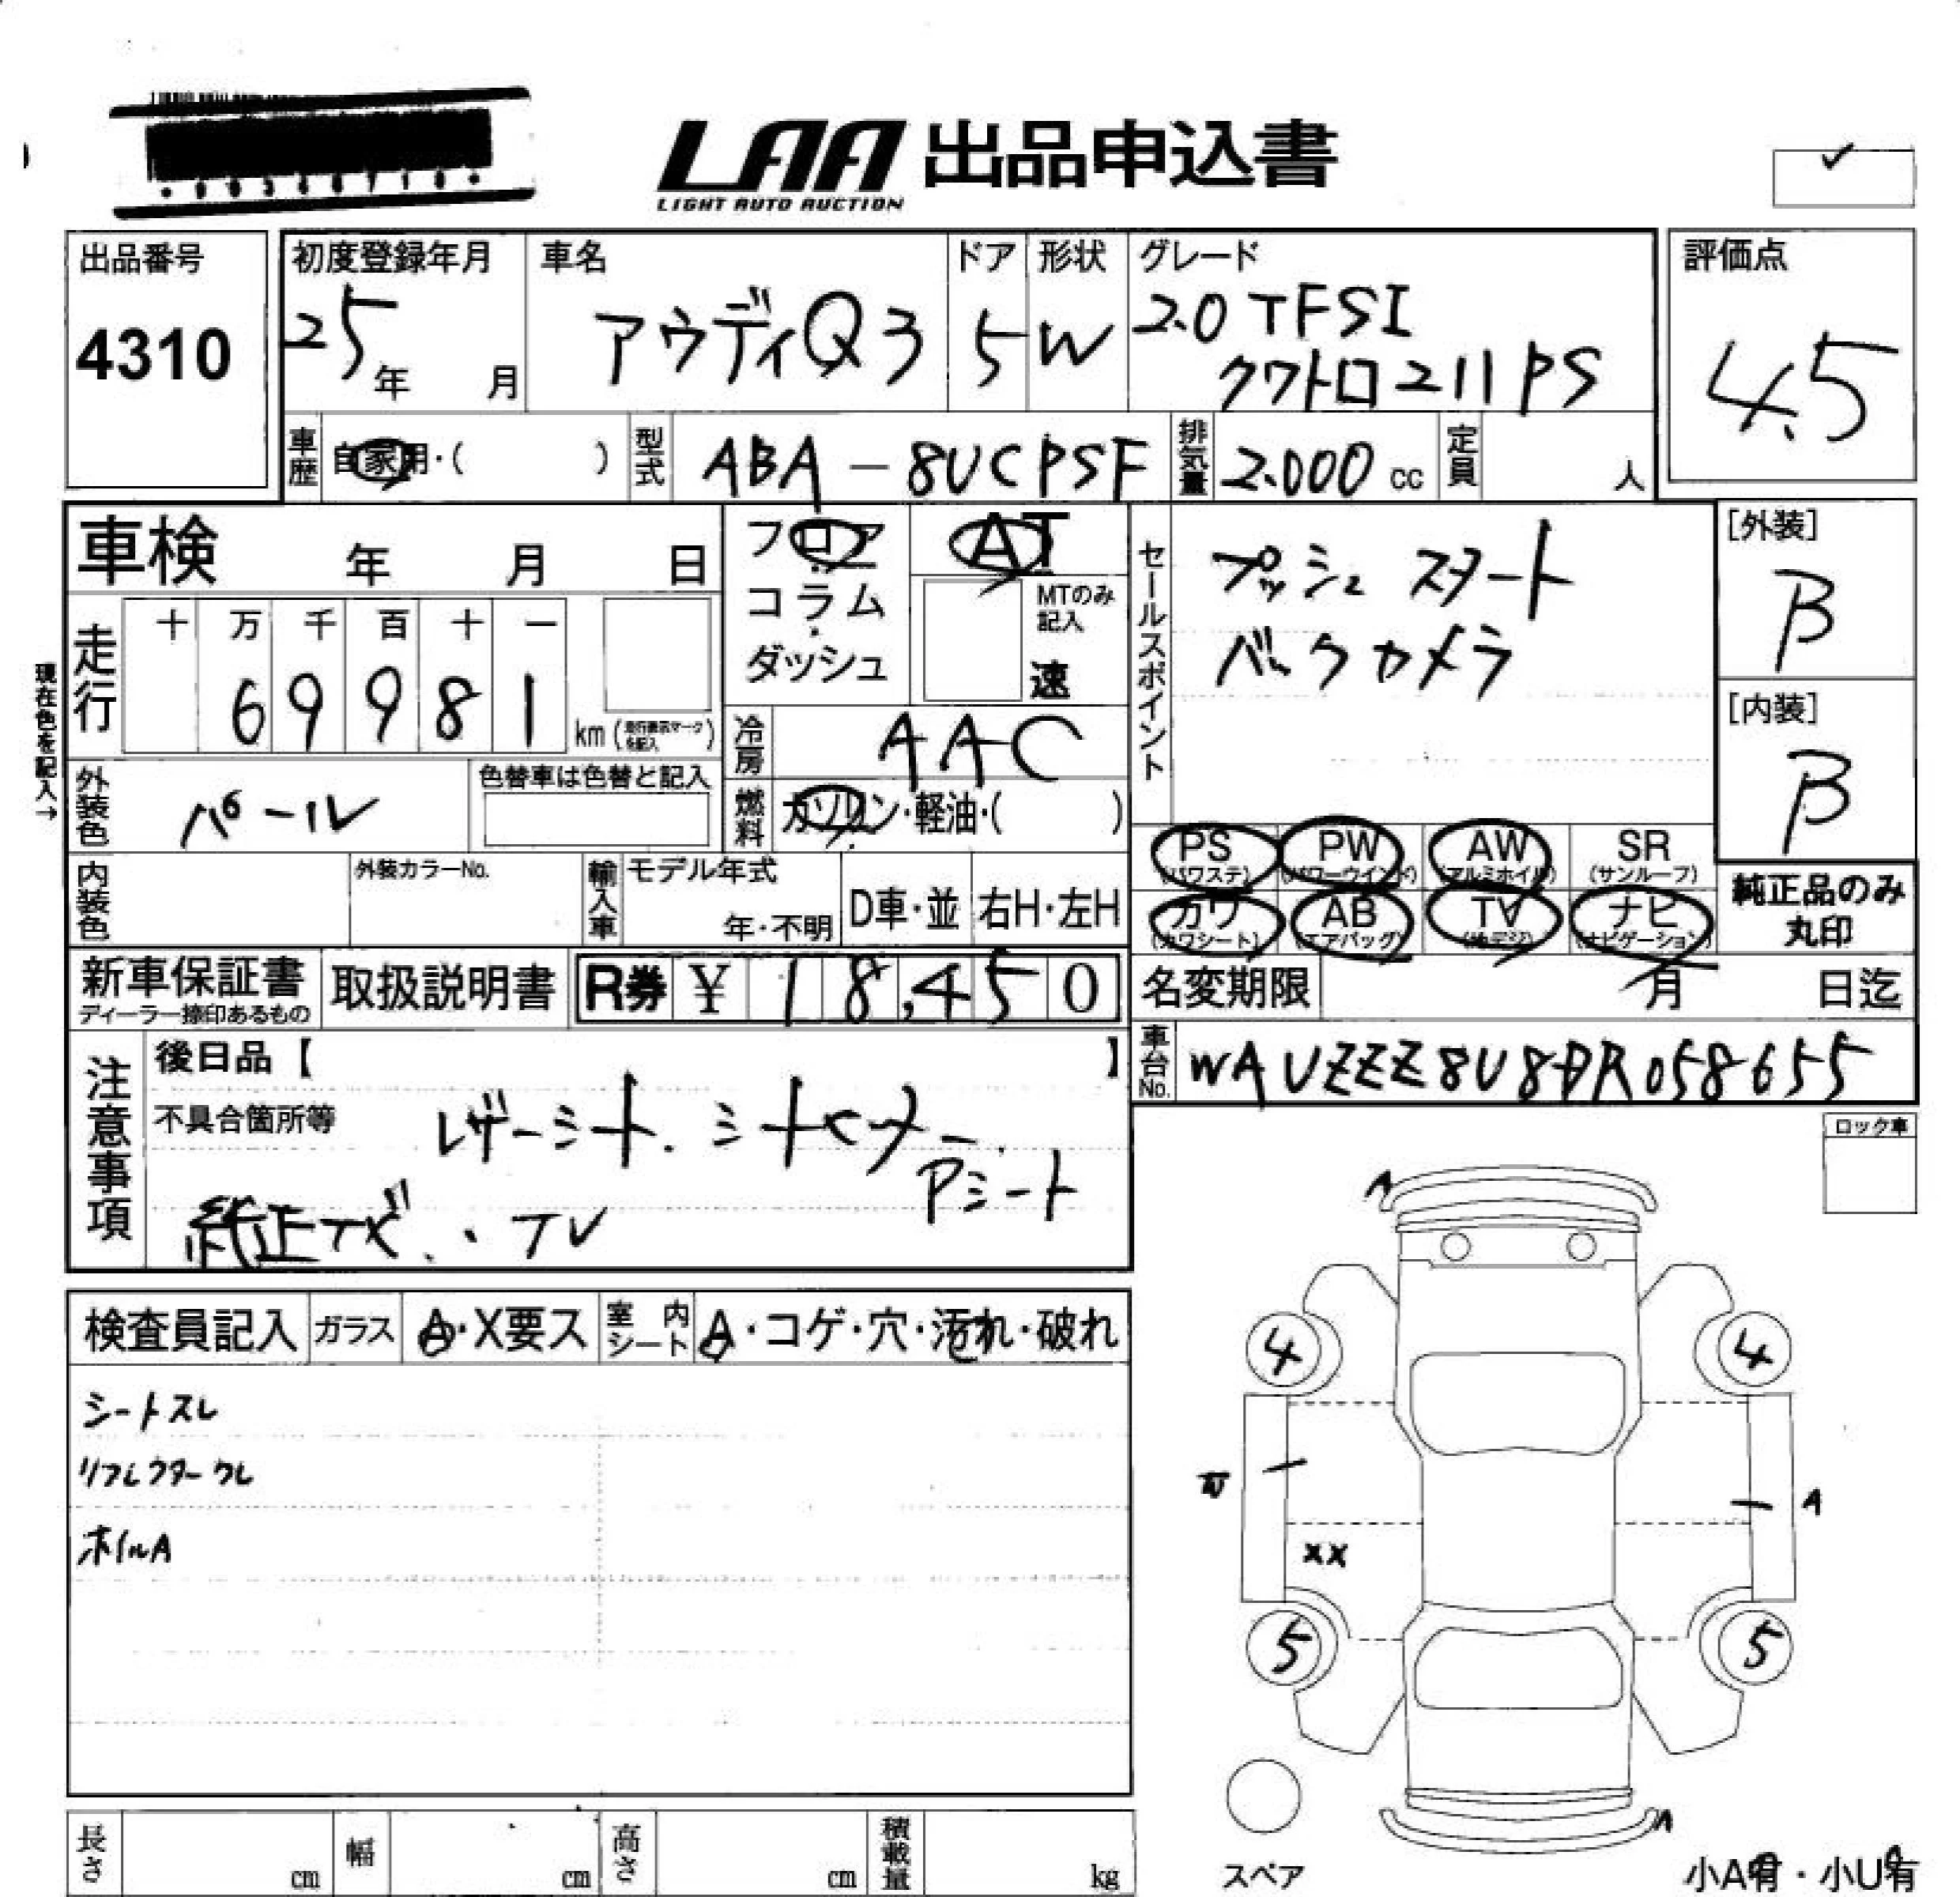 LAA 出品申込書
LIGHT AUTO AUCTION
出品番号
4310
初度登録年月
25年 月
車名
アウディQ3
ドア
5
形状
W
グレード
2.0 TFSI
クワトロ 211PS
評価点
4.5
車歴 自家用・( )
型式 ABA-8UCPSF
排気量 2.000 cc
定員 人
車検 年 月 日
走行 十 万 千 百 十 一
6 9 9 8 1 km (走行表示マークを記入)
現在色を記入→
外装色 パール
色替車は色替と記入
内装色
外装カラーNo.
輸入車
モデル年式
年・不明
D車・並
右H・左H
フロア
コラム
ダッシュ
AT
MTのみ記入
速
冷房 AAC
燃料 ガソリン・軽油・( )
セールスポイント
プッシュ スタート
バックカメラ
[外装]
B
[内装]
B
PS (パワステ)
PW (パワーウインド)
AW (アルミホイル)
SR (サンルーフ)
カワ (カワシート)
AB (エアバッグ)
TV (地デジ)
ナビ (ナビゲーション)
純正品のみ
丸印
新車保証書
ディーラー捺印あるもの
取扱説明書
R券 ¥ 18,450
名変期限 月 日迄
車台No. WAUZZZ8U8DR058655
注意事項
後日品【 】
不具合箇所等
レザーシート.シートヒーター
Pシート
純正ナビ.・TV
ロック車
検査員記入
ガラス A・X要ス
室内シート A・コゲ・穴・汚れ・破れ
シートスレ
リフレクターワレ
ホイルA
A
4 4
A
XX
5 5
A
スペア
小A有・小U有
長さ cm
幅 cm
高さ cm
積載量 kg